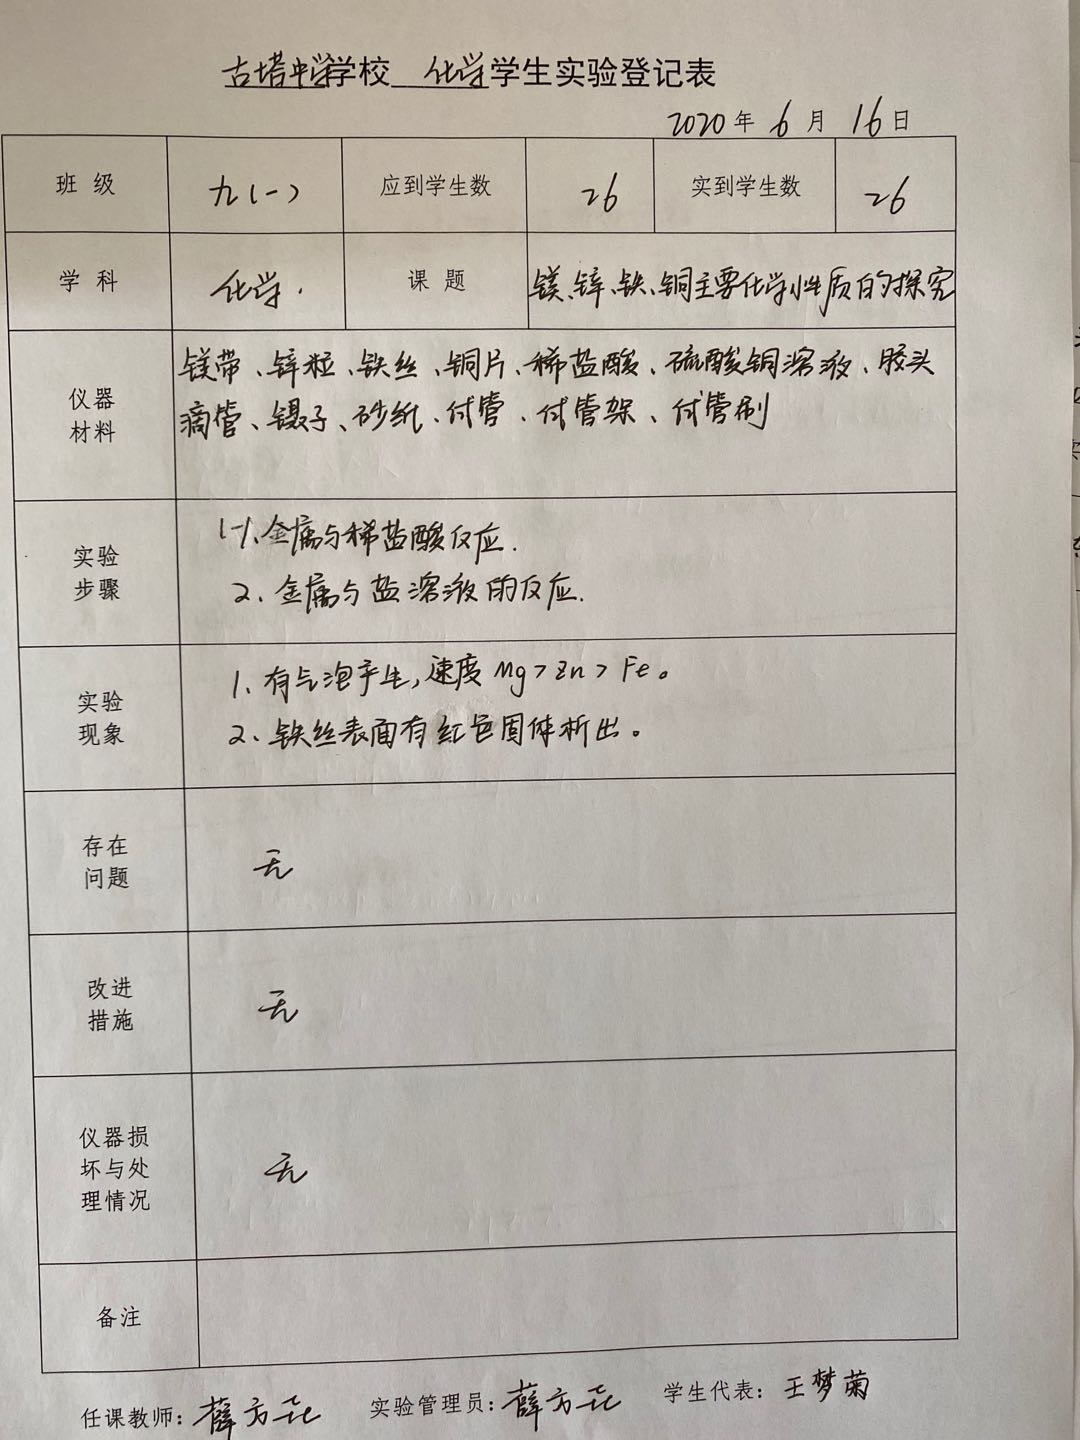 古塔中学学校 化学学生实验登记表
2020年 6月 16日
班级 九(一) 应到学生数 26 实到学生数 26
学科 化学. 课题 镁、锌、铁、铜主要化学性质的探究
仪器
材料
镁带、锌粒、铁丝、铜片、稀盐酸、硫酸铜溶液、胶头
滴管、镊子、砂纸、试管、试管架、试管刷
实验
步骤
1、金属与稀盐酸反应.
2、金属与盐溶液的反应.
实验
现象
1、有气泡产生,速度 Mg>Zn>Fe。
2、铁丝表面有红色固体析出。
存在
问题
无
改进
措施
无
仪器损
坏与处
理情况
无
备注
任课教师:薛方 实验管理员:薛方 学生代表:王梦菊